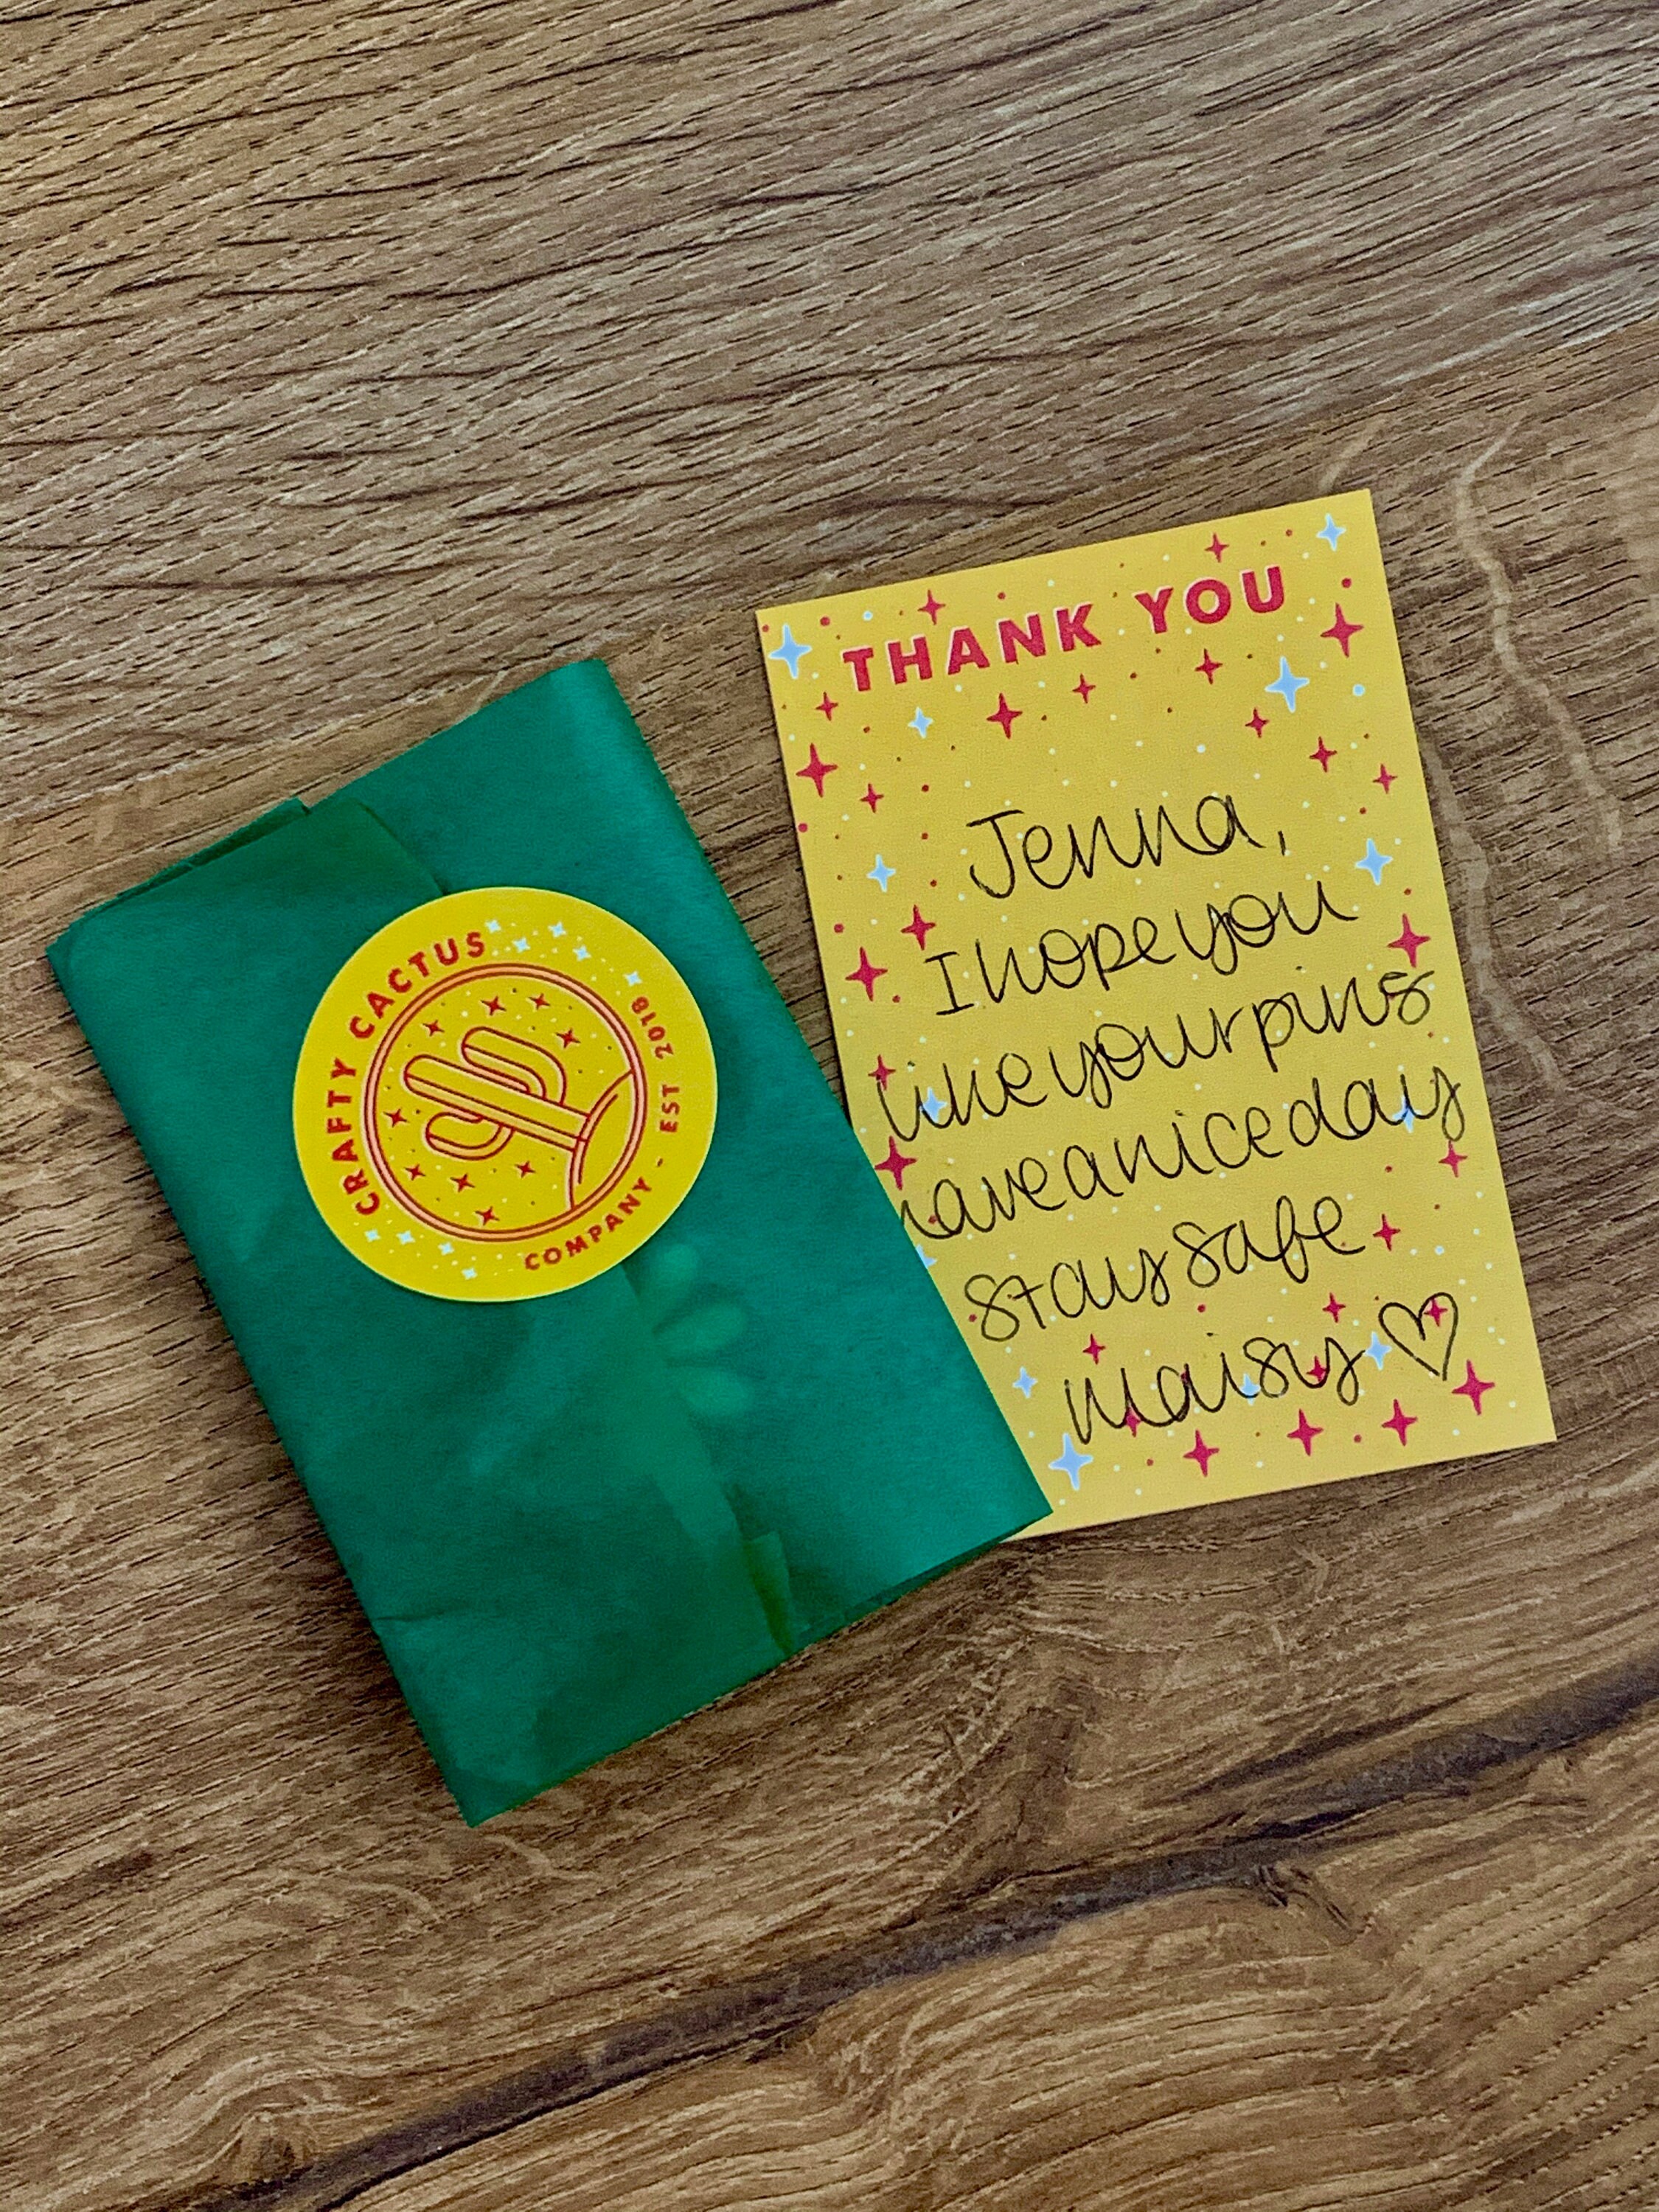 CRAFTY CACTUS
COMPANY - EST 2018
THANK YOU
Jenna,
I hope you
like your pins
have a nice day
stay safe
maisy ♡